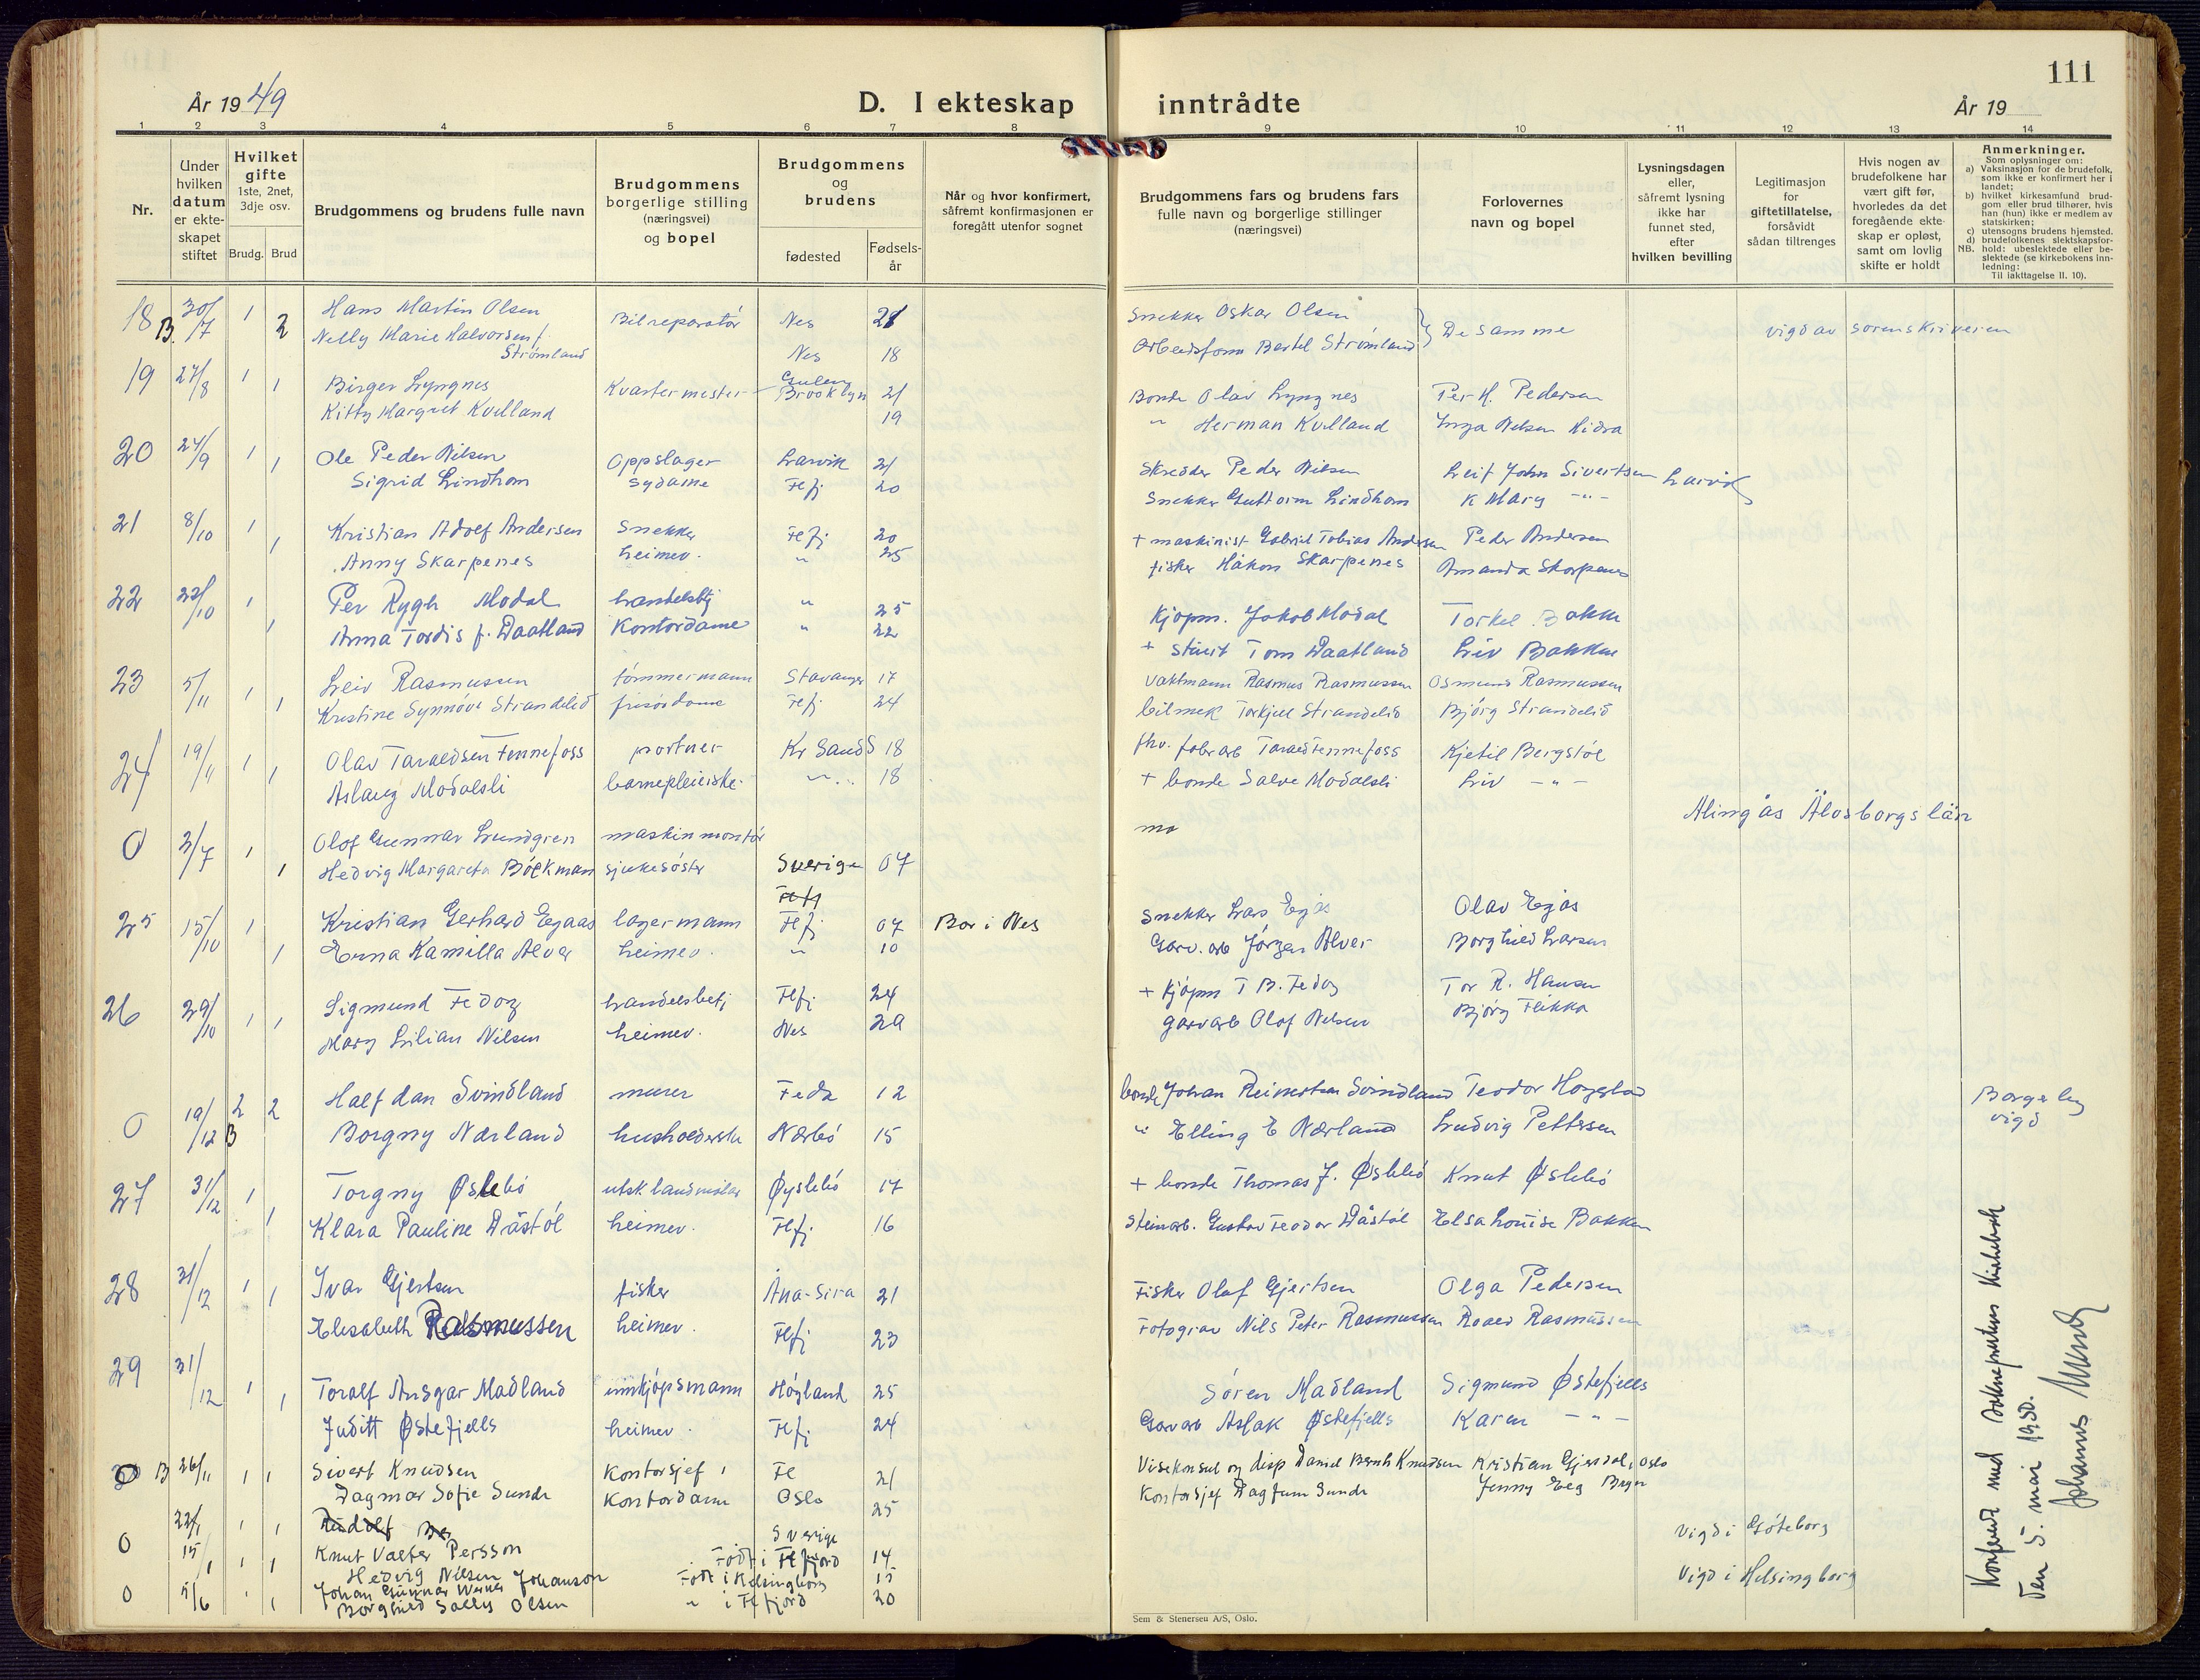 111
År 1949
D. I ekteskap inntrådte
År 19
1 2 3 4 5 6 7 8 9 10 11 12 13 14
Nr.
Under hvilken datum er ekteskapet stiftet
Hvilket gifte 1ste, 2net, 3dje osv.
Brudg. Brud
Brudgommens og brudens fulle navn
Brudgommens borgerlige stilling (næringsvei) og bopel
Brudgommens og brudens
fødested
Fødselsår
Når og hvor konfirmert, såfremt konfirmasjonen er foregått utenfor sognet
Brudgommens fars og brudens fars fulle navn og borgerlige stillinger (næringsvei)
Forlovernes navn og bopel
Lysningsdagen eller, såfremt lysning ikke har funnet sted, efter hvilken bevilling
Legitimasjon for giftetillatelse, forsåvidt sådan tiltrenges
Hvis nogen av brudefolkene har vært gift før, hvorledes da det foregående ekteskap er opløst, samt om lovlig skifte er holdt
Anmerkninger.
Som oplysninger om:
a) Vaksinasjon for de brudefolk, som ikke er konfirmert her i landet;
b) hvilket kirkesamfund brudgom eller brud tilhører, hvis han (hun) ikke er medlem av statskirken;
c) utensogns brudens hjemsted.
d) brudefolkenes slektskapsforhold: ubeslektede eller beslektede (se kirkebokens innledning:
NB. Til iakttagelse II. 10).
18 B. 30/7 1 Hans Martin Olsen Bilreparatör Nes 21 Snekker Oskar Olsen } De samme vigd av sorenskriveren
2 Nelly Marie Halvorsen f. Strømland Nes 18 Arbeidsform Bertel Strømland
19 27/8 1 Birger Lyngnes Kvartermester 21 Bonde Olav Lyngnes Per H. Pedersen
1 Kitty Margret Kvelland Brooklyn 19 " Herman Kvelland Inga Nilsen Hidra
20 24/9 1 Ole Peder Nilsen Oppslager Larvik 21 Skredder Peder Nilsen Leif John Sivertsen Larvik
1 Sigrid Lindhom Sydame Flfj 20 Snekker Guttorm Lindhom K Mary -"-
21 8/10 1 Kristian Adolf Andersen Snekker Flfj 20 + maskinist Gabriel Tobias Andersen Peder Andersen
1 Anny Skarpenes heimev. " 25 fisker Håkon Skarpenes Amanda Skarpenes
22 22/10 1 Per Rygh Modal handelsbtj " 25 Kjøpm. Jakob Modal Torkel Bakke
1 Anna Tordis f. Daatland Kontordame " 22 + stuert Tom Daatland Liv Bakken
23 5/11 1 Leiv Rasmussen tømmermann Stavanger 17 Vaktmann Rasmus Rasmussen Osmund Rasmussen
1 Kristine Synnøve Strandelid frisørdame Flfj 24 bilmek Torkjell Strandelid Bjørg Strandelid
24 19/11 1 Olav Taraldsen Fennefoss portner Kr Sand S 18 fhv. fabr arb Tarald Fennefoss Kjetil Bergstøl
1 Aslaug Modalsli barnepleierske " 18 + bonde Salve Modalsli Liv -"-
0 3/7 1 Olof Gunnar Lundgren maskinmontør Alingås Älvsborgs län
1 Hedvig Margareta Böckman sjukesøster Sverige 07
25 15/10 1 Kristian Gerhard Egaas lagermann Flfj 07 Bor i Nes Snekker Lars Egås Olav Egås
1 Erna Kamilla Alver heimev. " 10 Garv. arb Jørgen Alver Borghild Larsen
26 29/10 1 Sigmund Fedog handelsbetj Flfj 24 + Kjøpm T B. Fedog Tor R. Hansen
1 Mary Lilian Nilsen heimev. Nes 29 garvarb Olof Nilsen Bjørg Flikka
0 19/12 B 2 Halfdan Svindland murer Feda 12 bonde Johan Reinertsen Svindland Teodor Hogstad Borgerlig vigd
2 Borgny Nærland husholderske Nærbö 15 " Elling E Nærland Ludvig Pettersen
27 31/12 1 Torgny Øslebö utsk. landmåler Øyslebö 17 + bonde Thomas J. Øslebö Knut Øslebö
1 Klara Pauline Dåstöl heimev. Flfj. 16 Steinarb. Gustav Teodor Dåstöl Elsa Louise Bakken
28 31/12 1 Ivar Gjertsen fisker Åna-Sira 21 Fisker Olaf Gjertsen Olga Pedersen
1 Elisabeth Rasmussen heimev. Flfj 23 Fotograv Nils Peter Rasmussen Roald Rasmussen
29 31/12 1 Toralf Ansgar Madland innkjøpsmann Høyland 25 Søren Madland Sigmund Østefjells
1 Juditt Østefjells heimev. Flfj. 24 Garvarb Aslak Østefjells Karen -"-
0 B 26/11 1 Sivert Knudsen Kontorsjef Fl 21 Visekonsul og disp Daniel Bernh Knudsen Kristian Gjersdal, Oslo
1 Dagmar Sofie Sunde Kontordame Oslo 25 Kontorsjef Dagfinn Sunde Jenny Eeg
0 15/1 1 Knut Valter Persson Sverige 14 Vigd i Göteborg
1 Hedvig Nilsen Født i Flfjord 15
0 5/6 1 Johan Gunnar Werner Johanson Født i Helsingborg Vigd i Helsingborg
1 Borghild Sally Olsen " i Flfjord 20
Konferert med sokneprestens kirkebok
den 5. mai 1950.
Johannes
Sem & Stenersen A/S, Oslo.